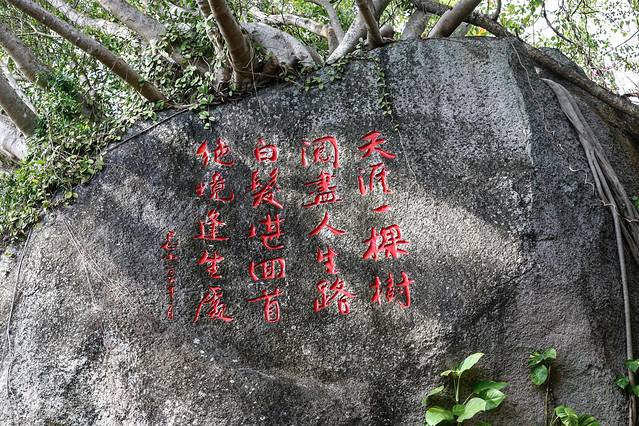 天涯一棵樹
阅盡人生路
白髮堪回首
绝境逢生處